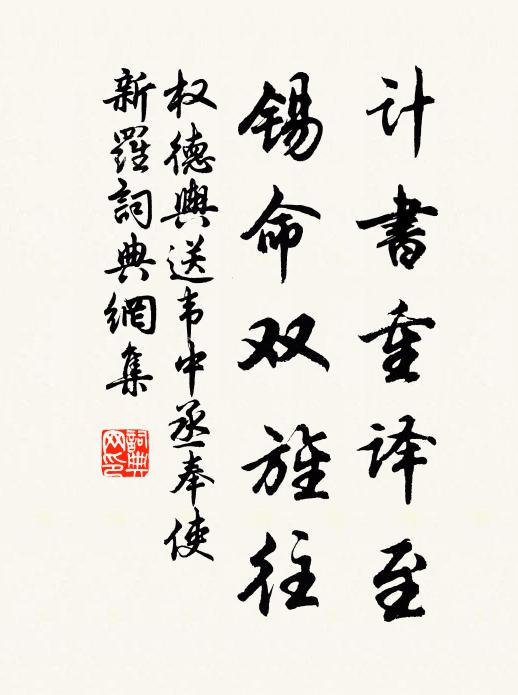 计書重译至
锡命双旌往
权德舆送韦中丞奉使
新羅詞典網集
詞典网印